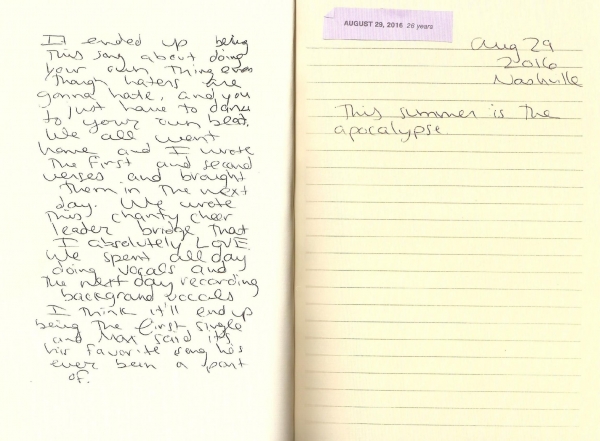 It ended up being
this song about doing
your own thing even
though haters are
gonna hate, and you
just have to dance
to your own beat.
We all went
home and I wrote
the first and second
verses and brought
them in the next
day. We wrote
this chanty cheer
leader bridge that
I absolutely LOVE.
We spent all day
doing vocals and
the next day recording
backgrand vocals
I think it'll end up
being the first single
and Max said it's
his favorite song he's
ever been a part
of.
AUGUST 29, 2016 26 years
Aug 29
2016
Nashville
This summer is the
apocalypse.